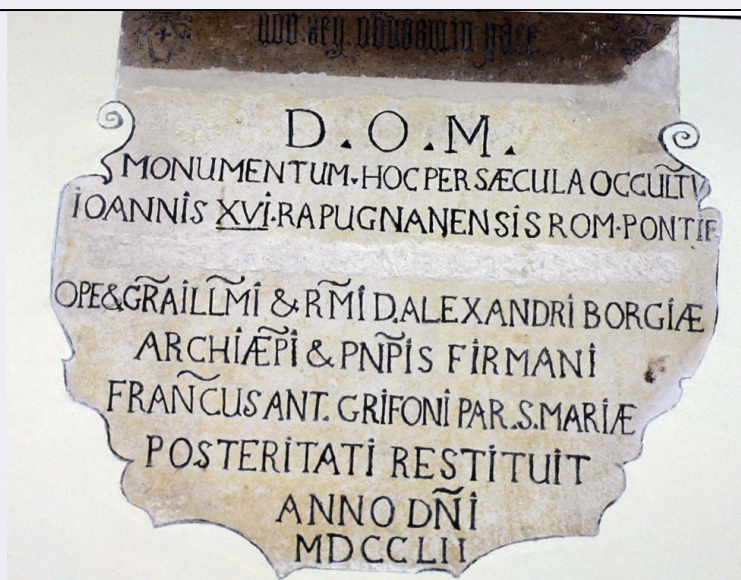 D.O.M.
MONUMENTUM·HOC PER SÆCULA OCCULTŨ
IOANNIS XVI·RAPUGNANENSIS ROM·PONTIF
OPE&GR̃A ILLM̃I & RM̃I D,ALEXANDRI BORGIÆ
ARCHIÆP̃I & PNP̃IS FIRMANI
FRANC̃US ANT. GRIFONI PAR.S.MARIÆ
POSTERITATI RESTITUIT
ANNO DÑI
MDCCLII